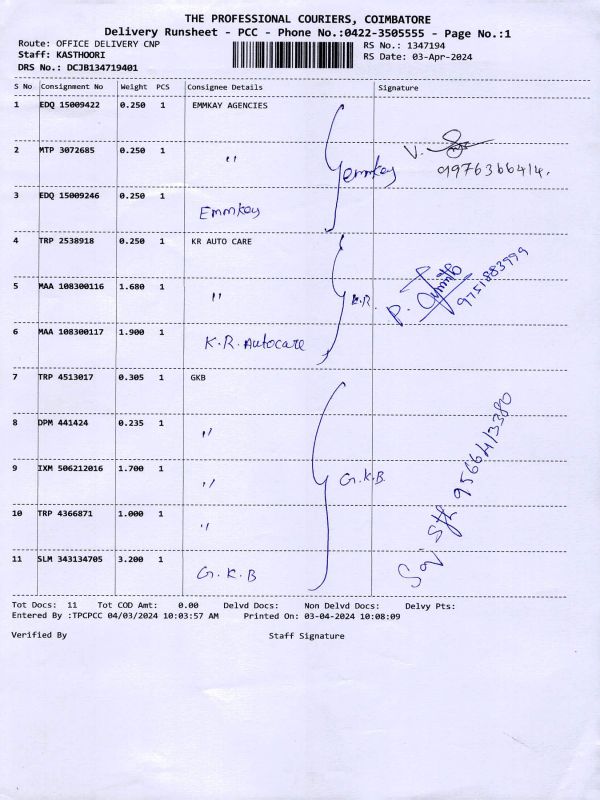 THE PROFESSIONAL COURIERS, COIMBATORE
Delivery Runsheet - PCC - Phone No.:0422-3505555 - Page No.:1
Route: OFFICE DELIVERY CNP RS No.: 1347194
Staff: KASTHOORI RS Date: 03-Apr-2024
DRS No.: DCJB134719401
S No Consignment No Weight PCS Consignee Details Signature
1 EDQ 15009422 0.250 1 EMMKAY AGENCIES
2 MTP 3072685 0.250 1 " emmkay V. 9976366414.
3 EDQ 15009246 0.250 1 Emmkay
4 TRP 2538918 0.250 1 KR AUTO CARE
5 MAA 108300116 1.680 1 " K.R. P. 9751883999
6 MAA 108300117 1.900 1 K.R. Autocare
7 TRP 4513017 0.305 1 GKB
8 DPM 441424 0.235 1 "
9 IXM 506212016 1.700 1 " G.K.B. 9566413380
10 TRP 4366871 1.000 1 "
11 SLM 343134705 3.200 1 G.K.B
Tot Docs: 11 Tot COD Amt: 0.00 Delvd Docs: Non Delvd Docs: Delvy Pts:
Entered By :TPCPCC 04/03/2024 10:03:57 AM Printed On: 03-04-2024 10:08:09
Verified By Staff Signature